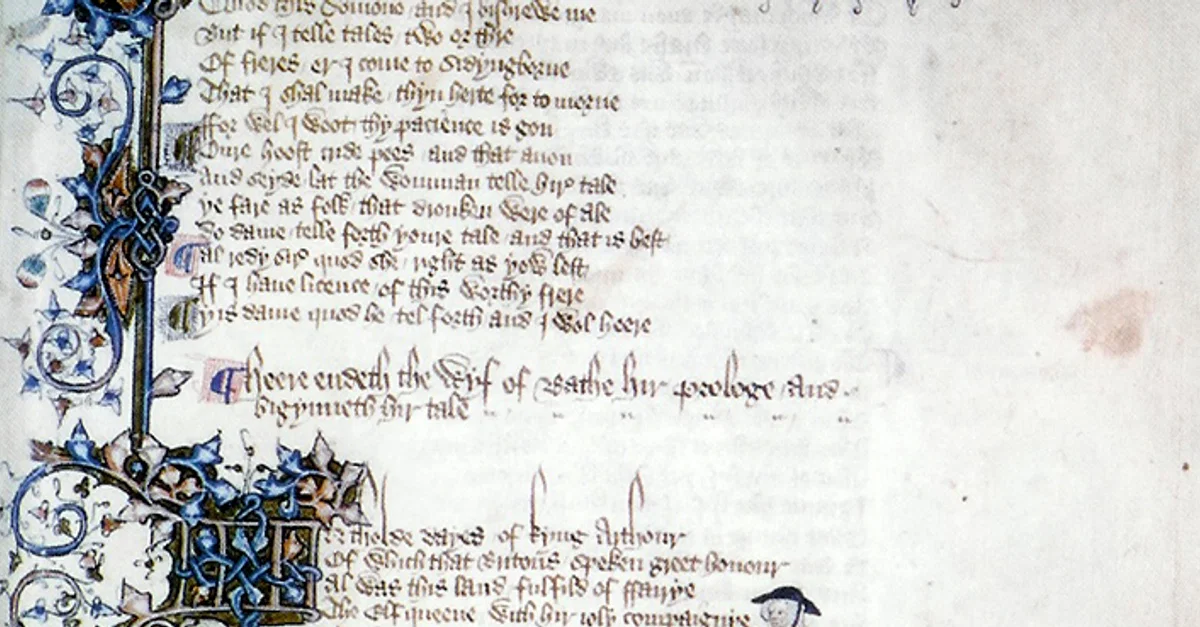 Quod this Somono and I bishrewe me
But if I telle tales two or thre
Of freres er I come to Sidyngborne
That I shal make thyn herte for to morne
ffor wel I woot thy pacience is gon
Oure hoost cride pees and that anon
And seyde lat the womman telle hir tale
ye fare as folk that dronken were of ale
Do dame telle forth youre tale and that is best
Al redy sir quod she right as yow lest
If I have licence of this worthy frere
yis dame quod he tel forth and I wol heere
Heere endeth the Wyf of Bathe hir prologe and
bigynneth hir tale
In tholde dayes of kyng Arthour
Of which that Britons speken greet honour
Al was this land fulfild of ffairye
The Elf queene with hir ioly compaignye